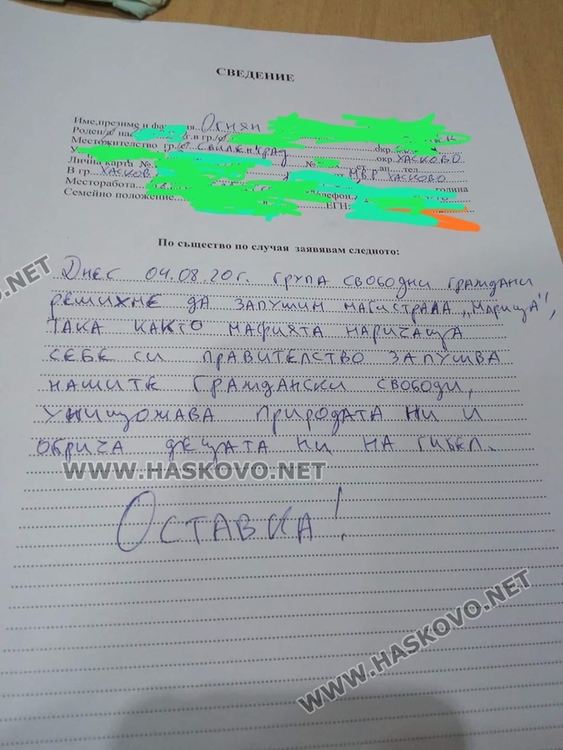 СВЕДЕНИЕ
Име,презиме и фамилия Огнян
Роден/а на г.в гр./с
Местожителство гр./с Свиленград окр.
окр. Хасково
Лична карта №
В гр. Хасково МВР Хасково
Месторабота Телефон
Семейно положение ЕГН:
По същество по случая заявявам следното:
Днес 04.08.20г. група свободни граждани
решихме да запушим магистрала „Марица",
така както мафията наричаща
себе си правителство запушва
нашите граждански свободи,
унищожава природата ни и
обрича децата ни на гибел.
Оставка!
WWW.HASKOVO.NET
WWW.HASKOVO.NET
WWW.HASKOVO.NET
WWW.HASKOVO.NET